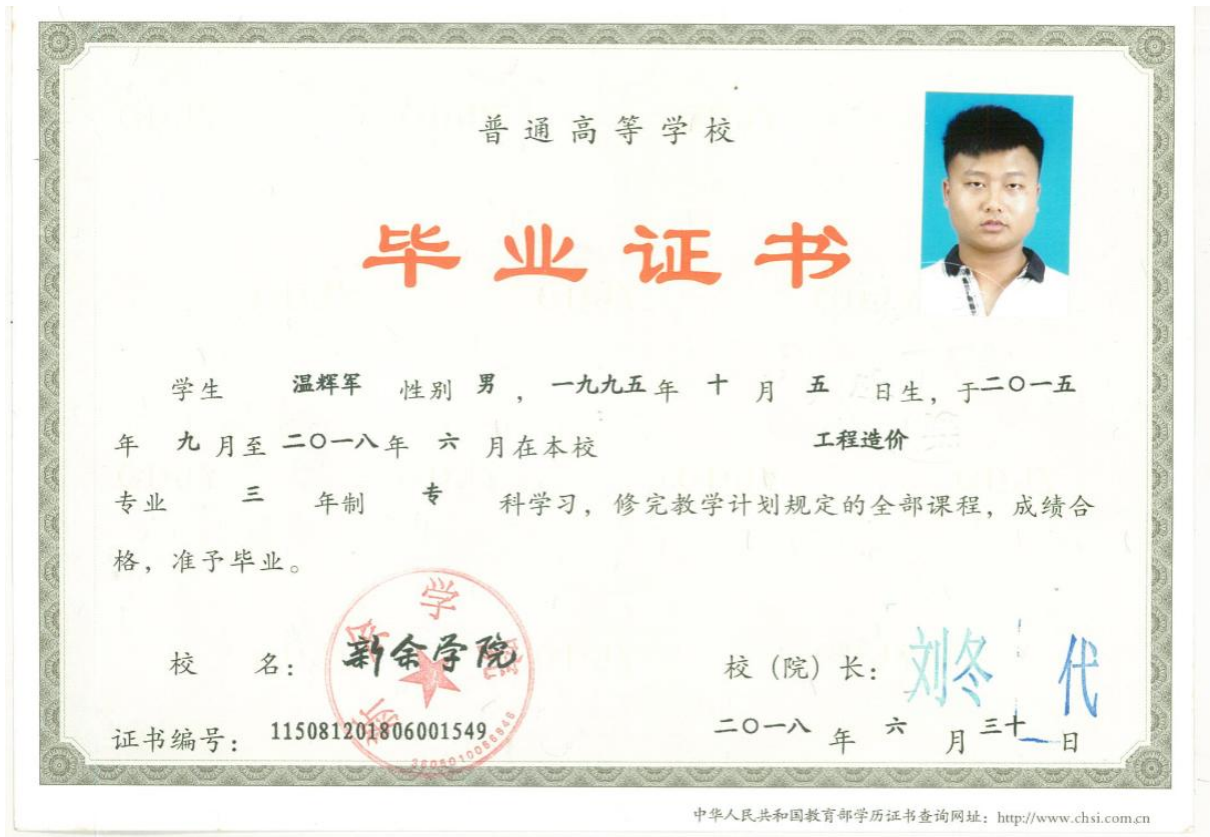 普通高等学校
毕业证书
学生 温辉军 性别 男 ，一九九五 年 十 月 五 日生，于二〇一五
年 九 月至 二〇一八 年 六 月在本校 工程造价
专业 三 年制 专 科学习，修完教学计划规定的全部课程，成绩合
格，准予毕业。
校 名： 新余学院
校（院）长： 刘冬 代
证书编号： 115081201806001549
二〇一八 年 六 月 三十 日
新余学院
中华人民共和国教育部学历证书查询网址：http://www.chsi.com.cn